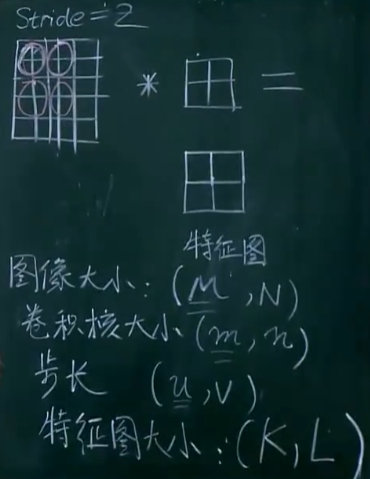 Stride=2
* =
特征图
图像大小:(M,N)
卷积核大小(m,n)
步长 (u,v)
特征图大小:(K,L)